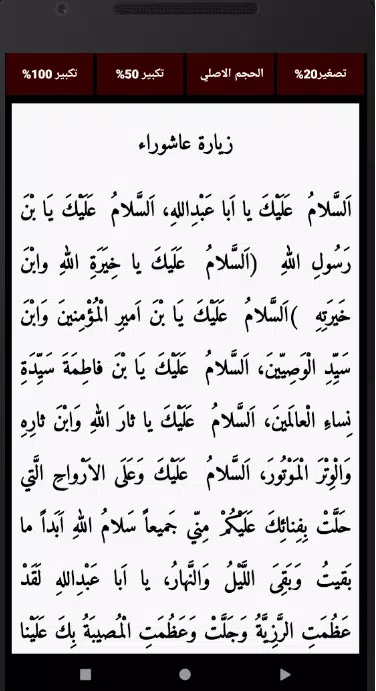 تصغير20% الحجم الاصلي تكبير 50% تكبير 100%
زيارة عاشوراء
اَلسَّلامُ عَلَيْكَ يا اَبا عَبْدِاللهِ، اَلسَّلامُ عَلَيْكَ يَا بْنَ
رَسُولِ اللهِ (اَلسَّلامُ عَلَيكَ يا خِيَرَةِ اللهِ وابْنَ
خَيرَتِهِ )اَلسَّلامُ عَلَيْكَ يَا بْنَ اَميرِ الْمُؤْمِنينَ وَابْنَ
سَيِّدِ الْوَصِيّينَ، اَلسَّلامُ عَلَيْكَ يَا بْنَ فاطِمَةَ سَيِّدَةِ
نِساءِ الْعالَمينَ، اَلسَّلامُ عَلَيْكَ يا ثارَ اللهِ وَابْنَ ثارِهِ
وَالْوِتْرَ الْمَوْتُورَ، اَلسَّلامُ عَلَيْكَ وَعَلَى الاَرْواحِ الَّتي
حَلَّتْ بِفِنائِكَ عَلَيْكُمْ مِنّي جَميعاً سَلامُ اللهِ اَبَداً ما
بَقيتُ وَبَقِىَ اللَّيْلُ وَالنَّهارُ، يا اَبا عَبْدِاللهِ لَقَدْ
عَظُمَتِ الرَّزِيَّةُ وَجَلَّتْ وَعَظُمَتِ الْمُصيبَةُ بِكَ عَلَيْنا